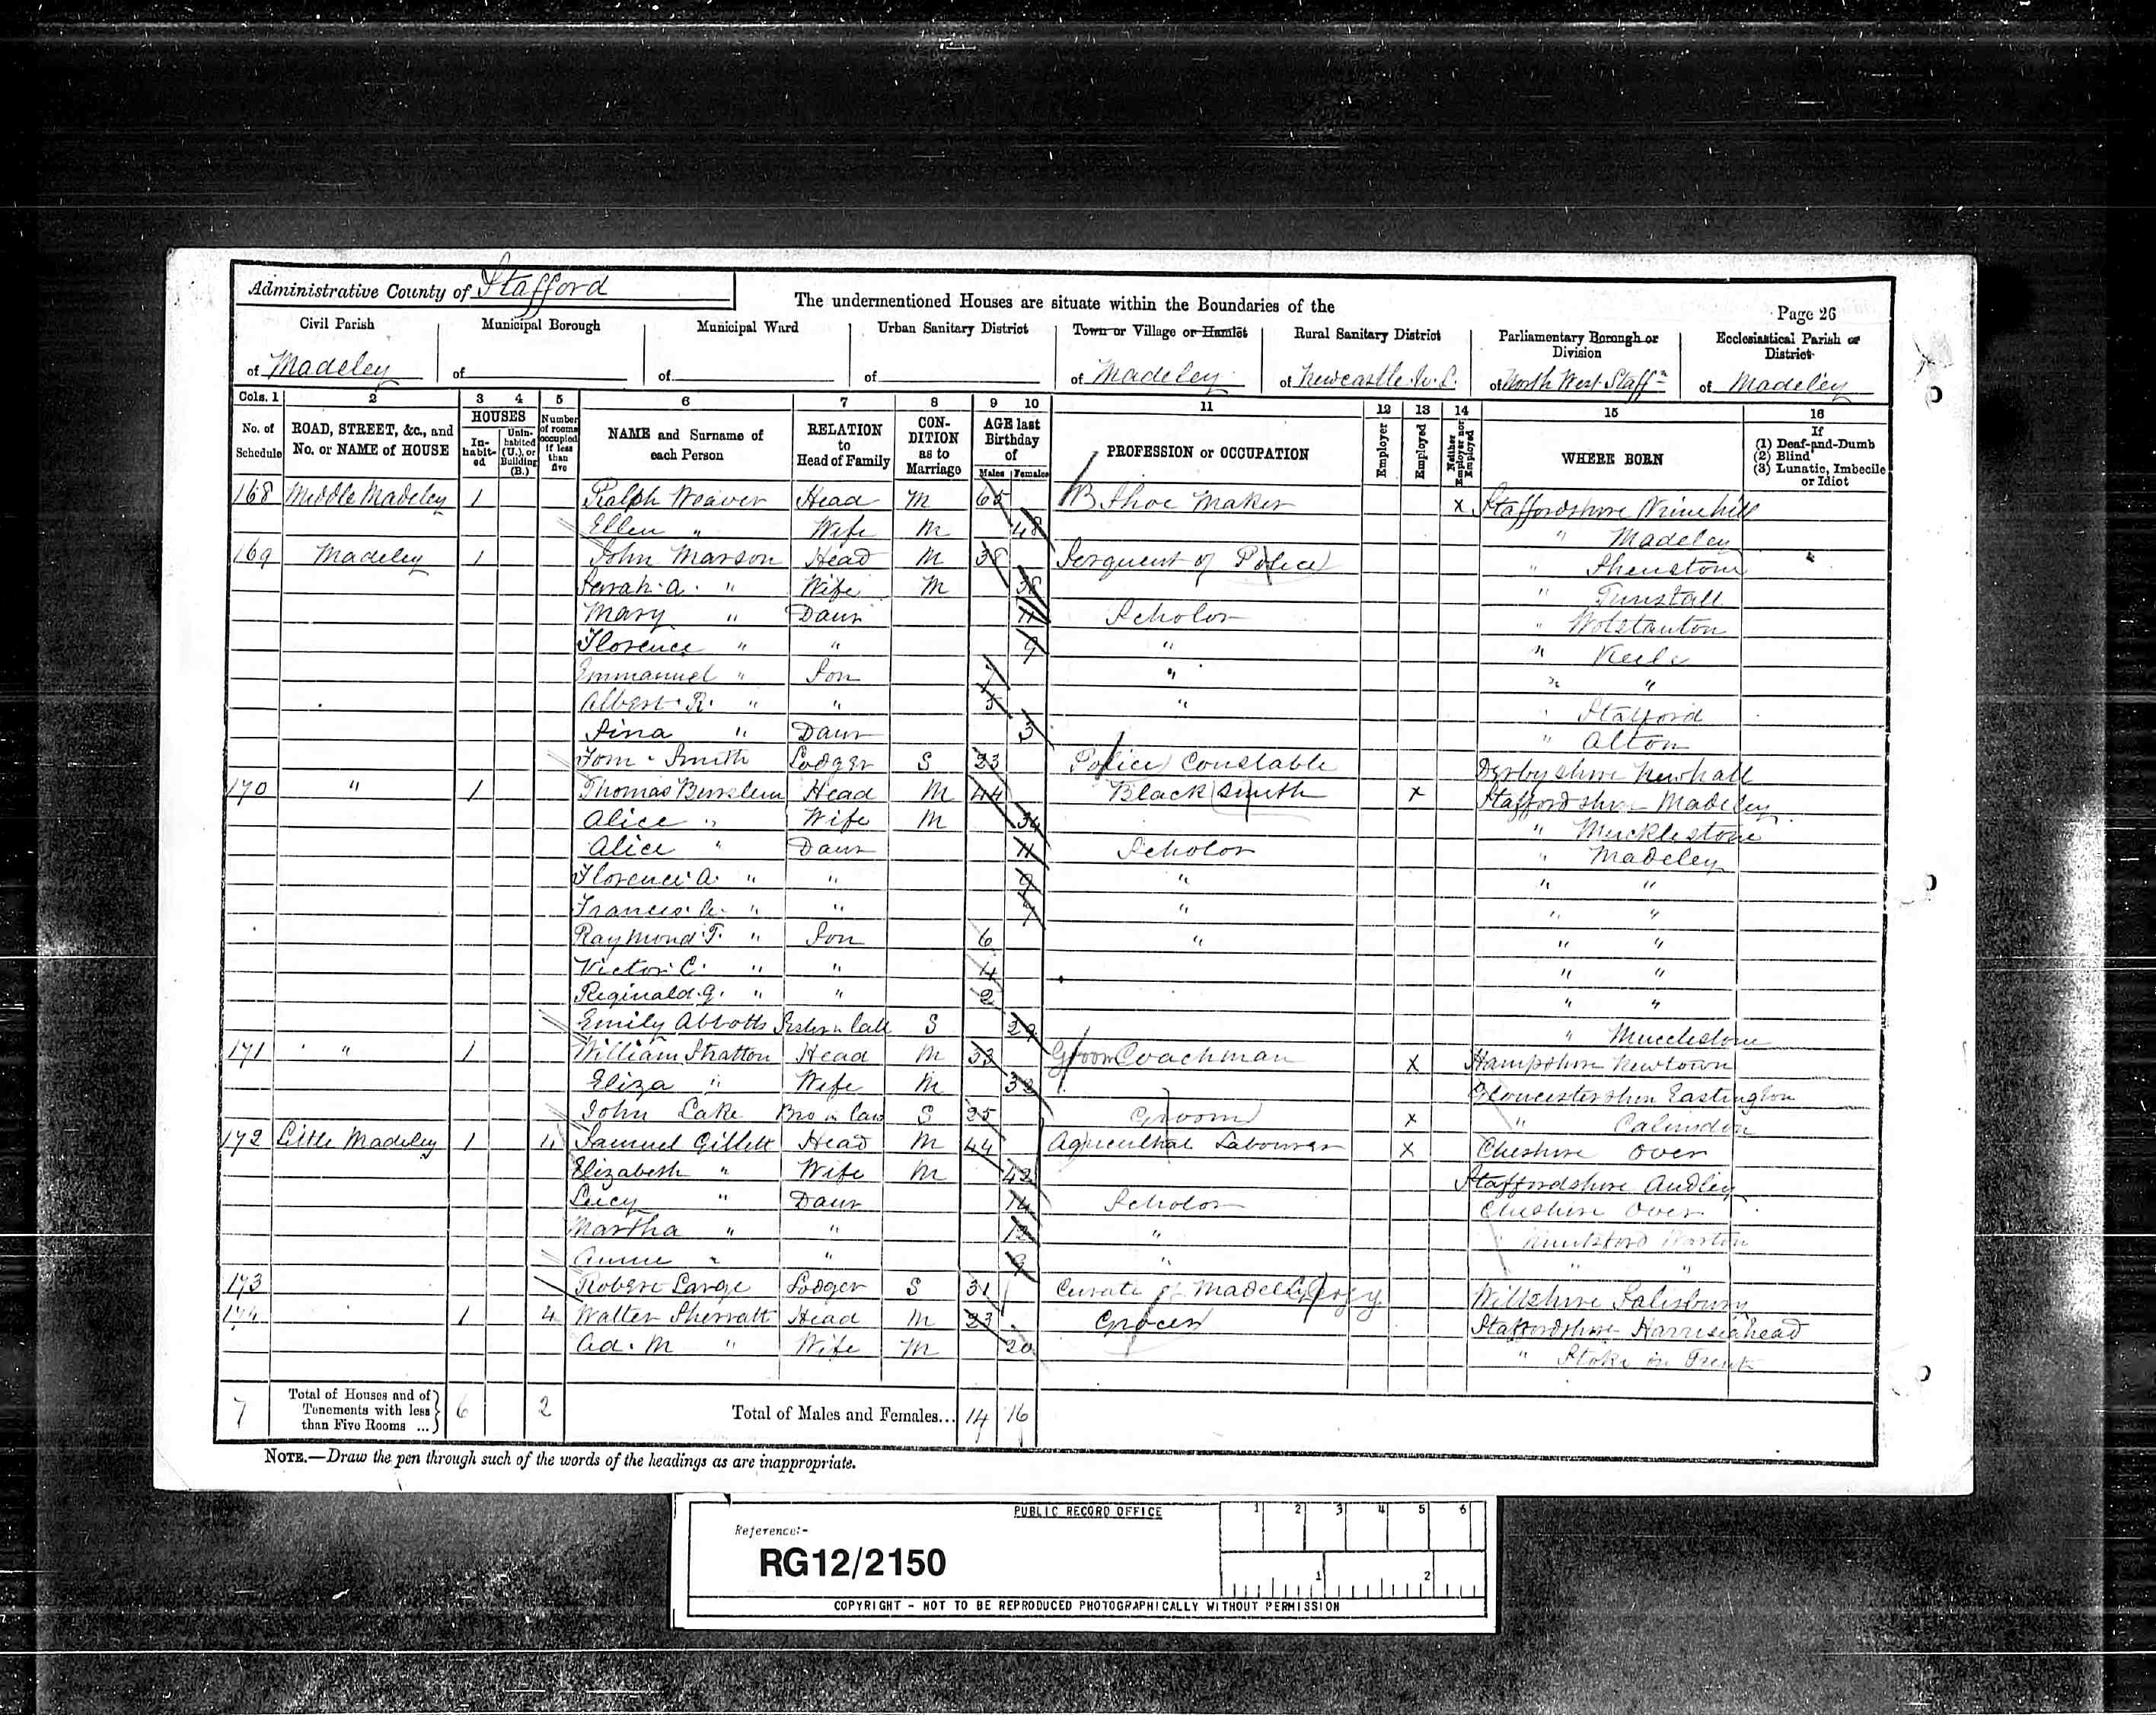 Administrative County of Stafford
The undermentioned Houses are situate within the Boundaries of the
Page 26
Civil Parish
of Madeley
Municipal Borough
of
Municipal Ward
of
Urban Sanitary District
of
Town or Village or Hamlet
of Madeley
Rural Sanitary District
of Newcastle
Parliamentary Borough or Division
of North West Staff
Ecclesiastical Parish or District
of Madeley
Cols. 1 2 3 4 5 6 7 8 9 10 11 12 13 14 15 16
No. of Schedule
ROAD, STREET, &c., and No. or NAME of HOUSE
HOUSES
In-habit-ed
Unin-habited (U.), or Building (B.)
Number of rooms occupied if less than five
NAME and Surname of each Person
RELATION to Head of Family
CON-DITION as to Marriage
AGE last Birthday of
Males Females
PROFESSION or OCCUPATION
Employer
Employed
Neither Employer nor Employed
WHERE BORN
If
(1) Deaf-and-Dumb
(2) Blind
(3) Lunatic, Imbecile or Idiot
168 Middle Madeley 1 Ralph Weaver Head M 65 B Shoe Maker x Staffordshire
Ellen " Wife M 48 " Madeley
169 Madeley 1 John Marson Head M 38 Serguent of Police " Shenstone
Sarah A. " Wife M 38 " Tunstall
Mary " Daur 11 Scholor " Wolstanton
Florence " " 9 " " Keele
Emmanuel " Son 7 " " "
Albert R. " " 5 " " Stafford
Daur 3 " Alton
Tom Smith Lodger S 23 Police Constable Derbyshire Newhall
170 " 1 Thomas Burslem Head M 44 Black Smith x Staffordshire Madeley
Alice " Wife M 34 " Mucklestone
Alice " Daur 11 Scholor " Madeley
Florence A. " " 9 " " "
Frances " " 7 " " "
Raymond T. " Son 6 " " "
Victor C. " " 4 " "
Reginald G. " " 2 " "
Emily Abbotts Sister in Law S 29 " Mucclestone
171 " 1 William Stratton Head M 33 Groom Coachman x Hampshire Newtown
Eliza " Wife M 32 Gloucestershire Eastington
John Lake Bro in law S 25 Groom x "
172 Little Madeley 1 4 Samuel Gillett Head M 44 Agricultral Labourer x Cheshire Over
Elizabeth " Wife M 42 Staffordshire Audley
Lucy " Daur 14 Scholor Cheshire Over
Martha " " 12 " "
Annie " " 9 " " "
173 Robert Large Lodger S 31 Curate of Madeley Wiltshire Salisbury
174 1 4 Walter Sherratt Head M 23 Grocer Staffordshire Harriseahead
Ad. M " Wife M 20 " Stoke on Trent
7 Total of Houses and of Tenements with less than Five Rooms ... 6 2 Total of Males and Females... 14 16
NOTE.—Draw the pen through such of the words of the headings as are inappropriate.
PUBLIC RECORD OFFICE
1 2 3 4 5 6
Reference:-
RG12/2150
1 2
COPYRIGHT - NOT TO BE REPRODUCED PHOTOGRAPHICALLY WITHOUT PERMISSION